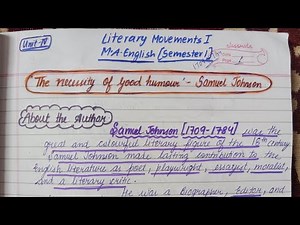 Unit-IV
Literary Movements I
M.A. English [Semester 1]
"The necessity of good humour" - Samuel Johnson
About the Author
Samuel Johnson [1709-1784] was the
great and colourful literary figure of the 18th century
Samuel Johnson made lasting contribution to the
English literature as poet, playwright, essayist, moralist,
and a literary critic.
He was a Biographer, Editor, and